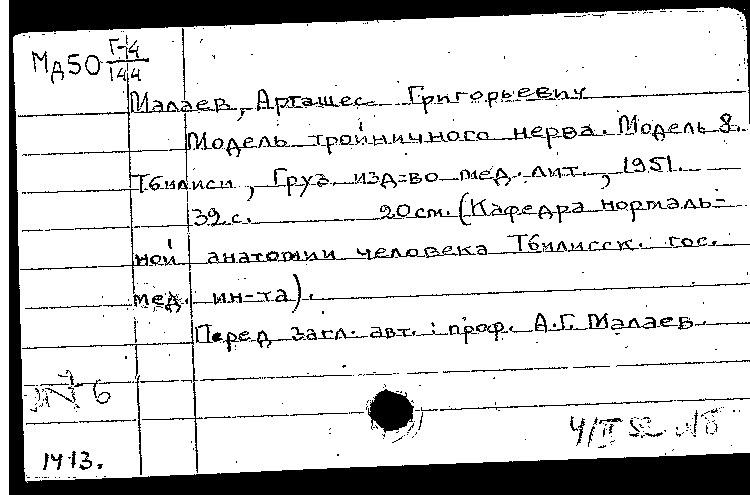 Мд50 Г-14
144
Малаев, Арташес Григорьевич
Модель тройничного нерва. Модель 8.
Тбилиси, Груз. изд-во мед. лит., 1951.
39 с. 20 см. (Кафедра нормаль-
ной анатомии человека Тбилисск. гос.
мед. ин-та).
Перед загл. авт.: проф. А.Г. Малаев.
6
1413.
4/II 52